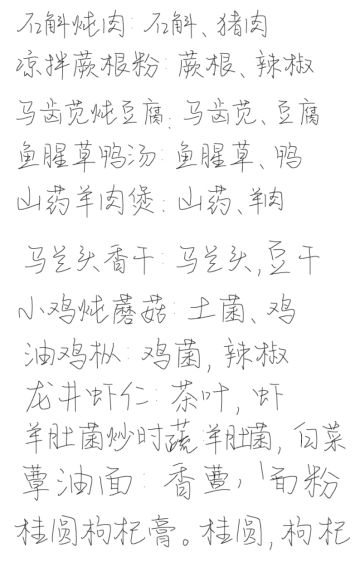 石斛炖肉：石斛、猪肉
凉拌蕨根粉：蕨根、辣椒
马齿苋炖豆腐：马齿苋、豆腐
鱼腥草鸭汤：鱼腥草、鸭
山药羊肉煲：山药、羊肉
马兰头香干：马兰头，豆干
小鸡炖蘑菇：土菌、鸡
油鸡枞：鸡菌，辣椒
龙井虾仁：茶叶，虾
羊肚菌炒时蔬：羊肚菌，白菜
蕈油面：香蕈，面粉
桂圆枸杞膏。桂圆，枸杞